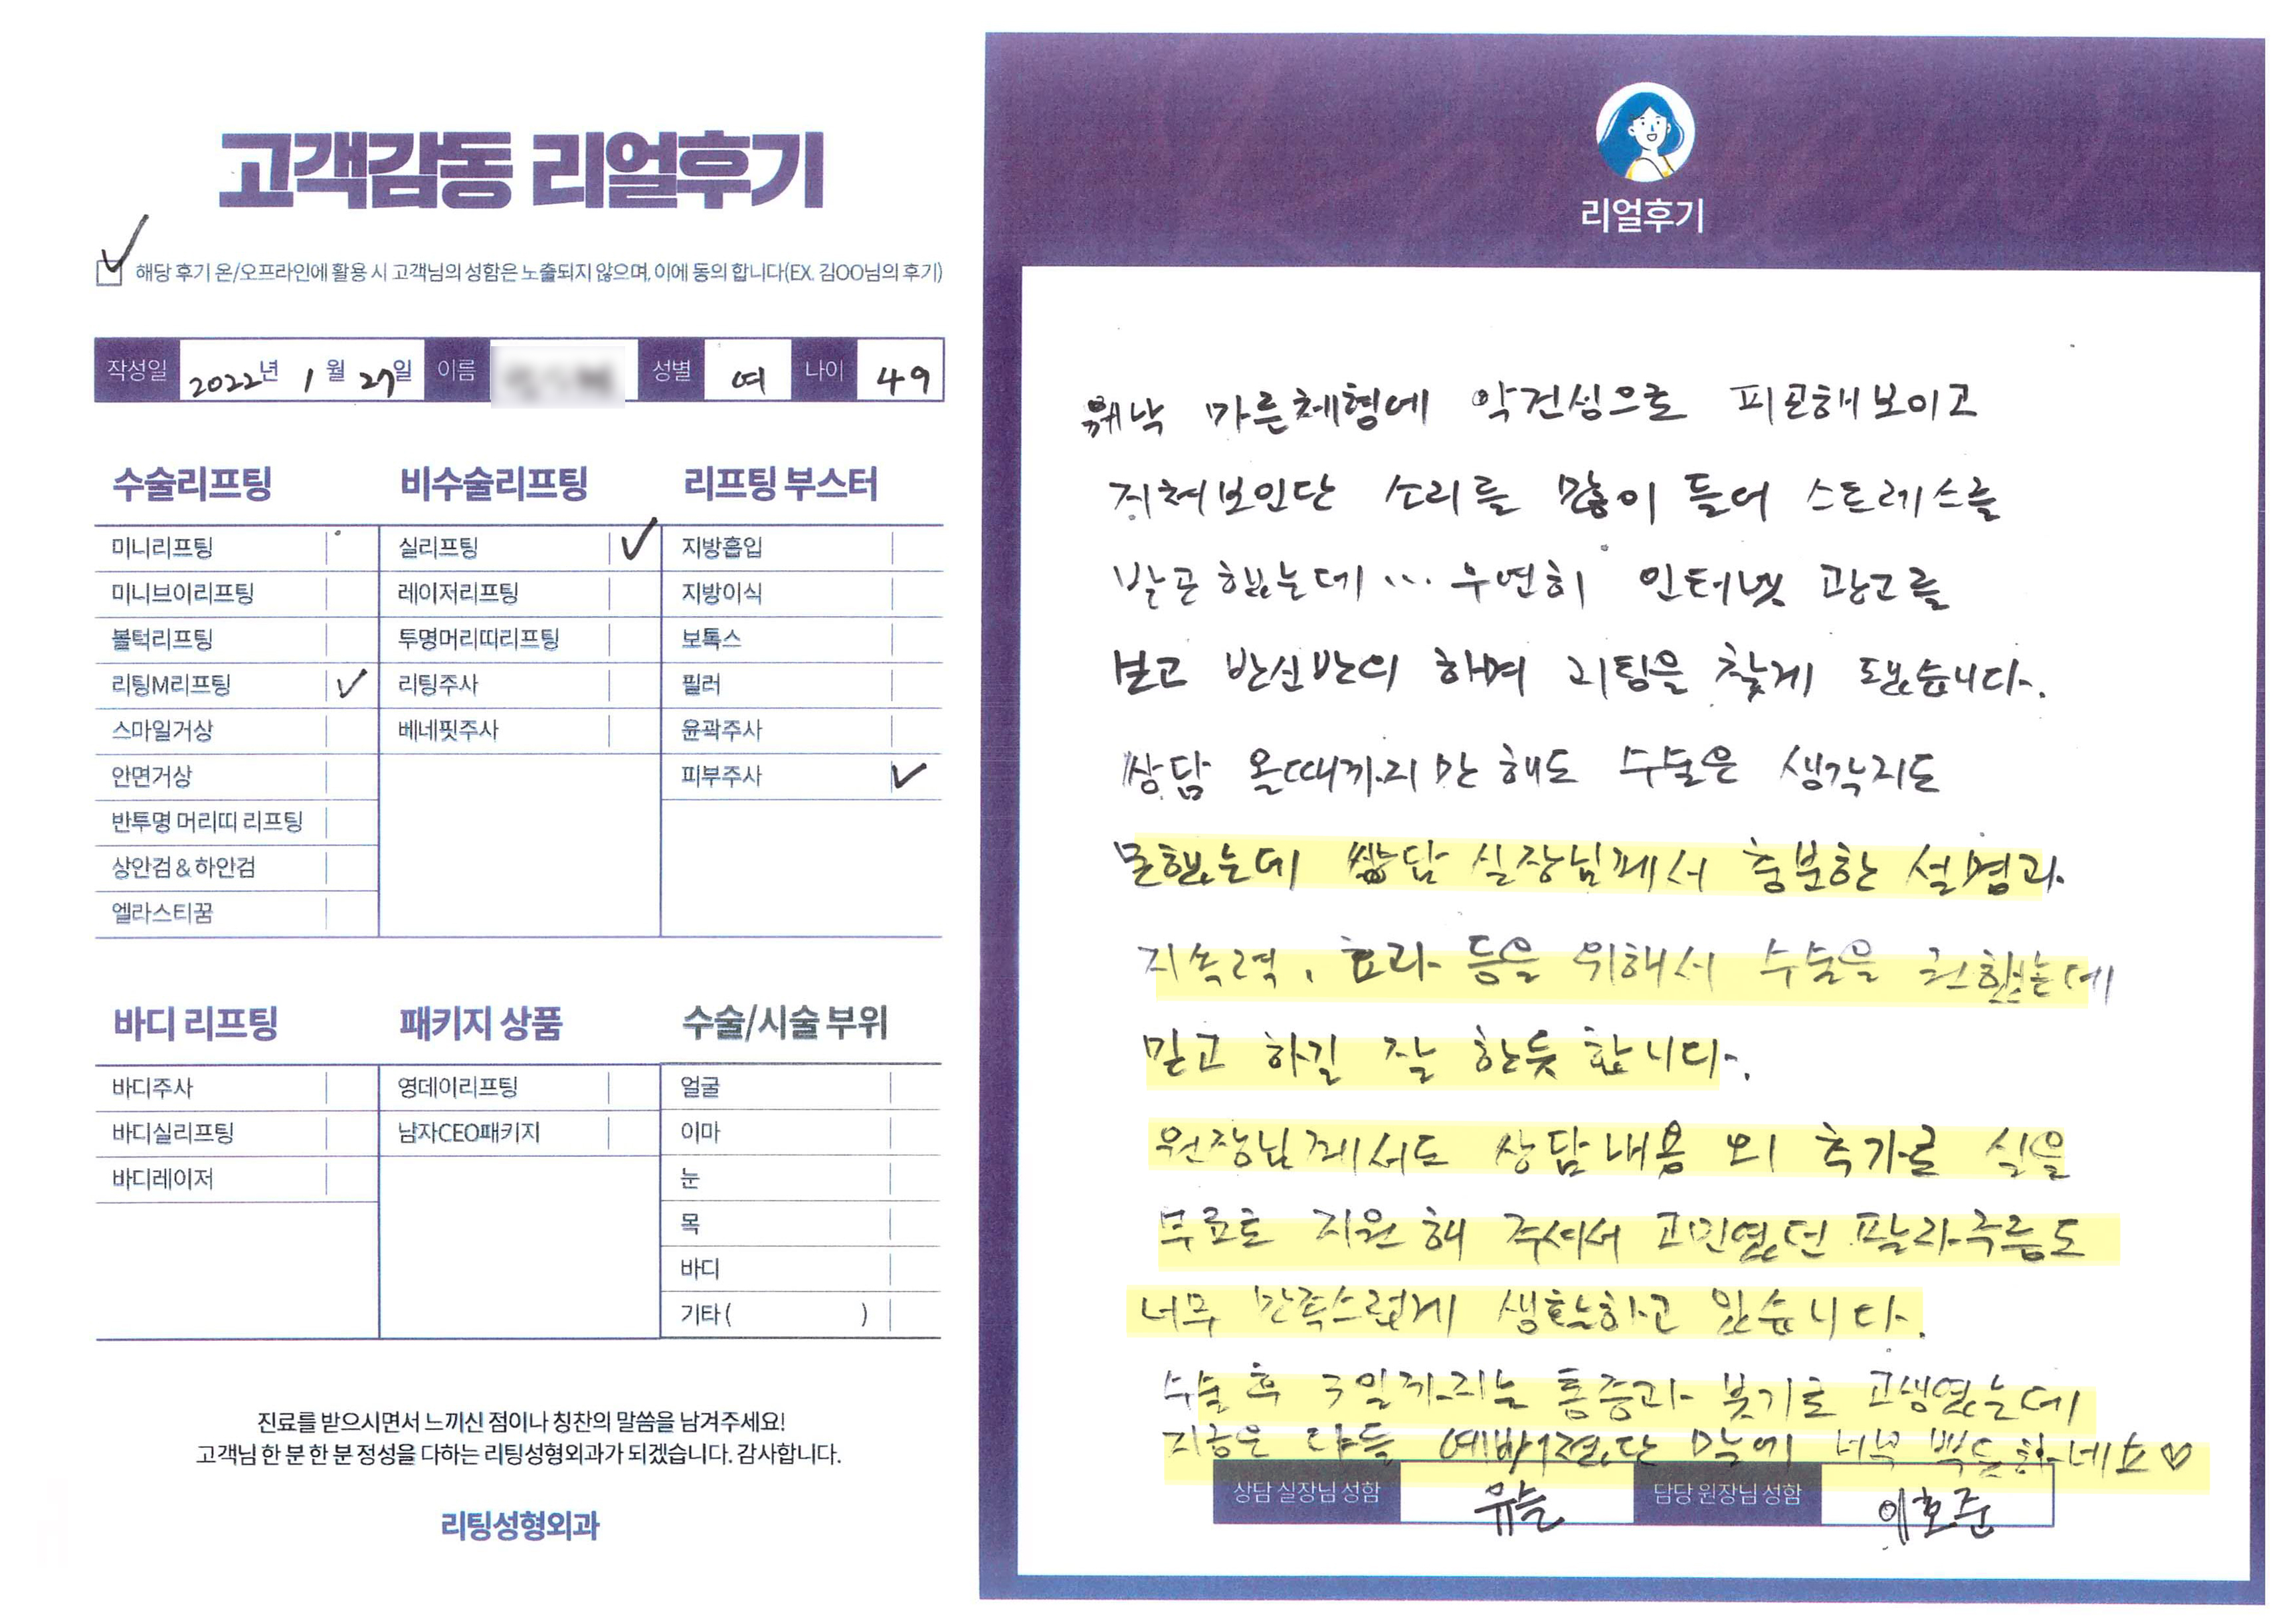 고객감동 리얼후기
해당 후기 온/오프라인에 활용 시 고객님의 성함은 노출되지 않으며, 이에 동의 합니다(EX. 김OO님의 후기)
작성일 2022년 1월 27일 이름 성별 여 나이 49
수술리프팅
미니리프팅
미니브이리프팅
볼턱리프팅
리팅M리프팅
스마일거상
안면거상
반투명 머리띠 리프팅
상안검&하안검
엘라스티꿈
비수술리프팅
실리프팅
레이저리프팅
투명머리띠리프팅
리팅주사
베네핏주사
리프팅 부스터
지방흡입
지방이식
보톡스
필러
윤곽주사
피부주사
바디 리프팅
바디주사
바디실리프팅
바디레이저
패키지 상품
영데이리프팅
남자CEO패키지
수술/시술 부위
얼굴
이마
눈
목
바디
기타( )
진료를 받으시면서 느끼신 점이나 칭찬의 말씀을 남겨주세요!
고객님 한 분 한 분 정성을 다하는 리팅성형외과가 되겠습니다. 감사합니다.
리팅성형외과
리얼후기
워낙 마른체형에 약건성으로 피곤해보이고
지쳐보인단 소리를 많이 들어 스트레스를
받곤 했는데... 우연히 인터넷 광고를
보고 반신반의 하며 리팅을 찾게 됐습니다.
상담 올때까지만 해도 수술은 생각지도
못했는데 상담 실장님께서 충분한 설명과
지속력, 효과 등을 위해서 수술을 권했는데
믿고 하길 잘 한듯 합니다.
원장님께서도 상담내용 외 추가로 실을
무료로 지원 해 주셔서 고민였던 팔자주름도
너무 만족스럽게 생활하고 있습니다.
수술 후 3일까지는 통증과 붓기로 고생였는데
지금은 다들 예뻐졌단 말에 너무 뿌듯하네요♡
상담 실장님 성함 유슬 담당 원장님 성함 이호준